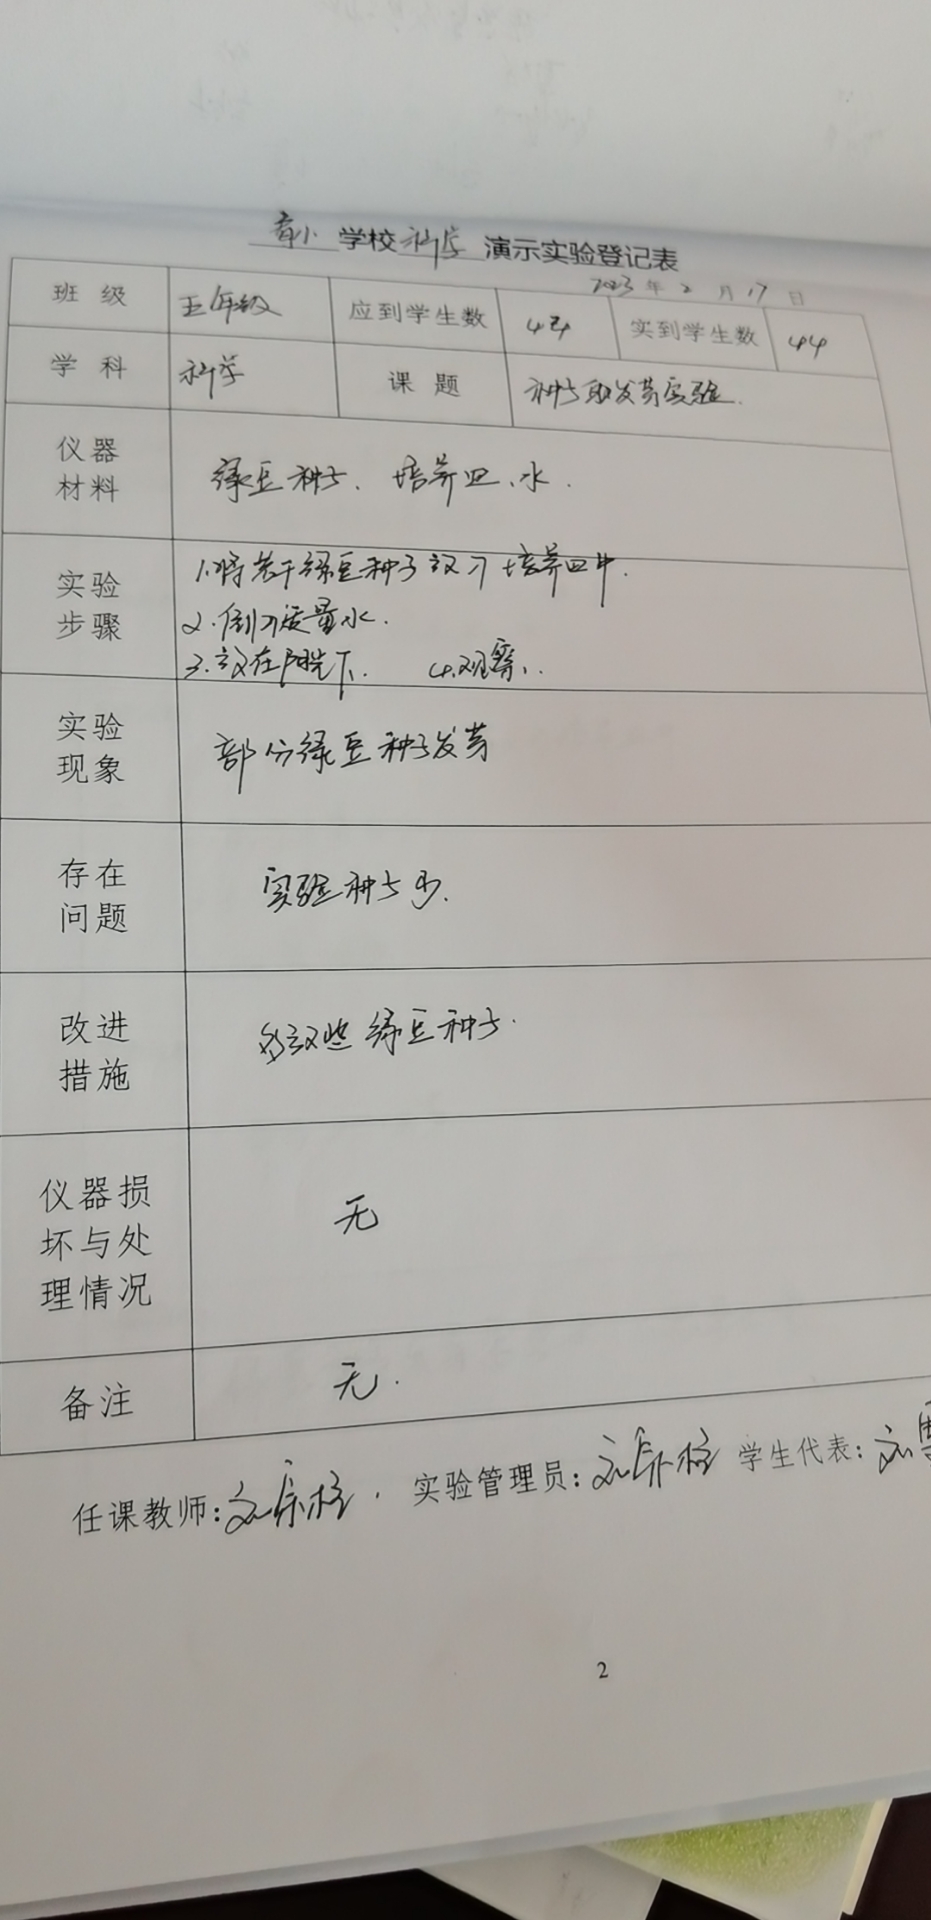 学校科学演示实验登记表
2023年2月17日
班级 五年级 应到学生数 44 实到学生数 44
学科 科学 课题 种子的发芽实验.
仪器材料 绿豆种子、培养皿、水.
实验步骤 1.将若干绿豆种子放入培养皿中.
2.倒入适量水.
3.放在阳光下. 4.观察.
实验现象 部分绿豆种子发芽
存在问题 实验种子少.
改进措施 多放些绿豆种子.
仪器损坏与处理情况 无
备注 无.
任课教师: 实验管理员: 学生代表:
2